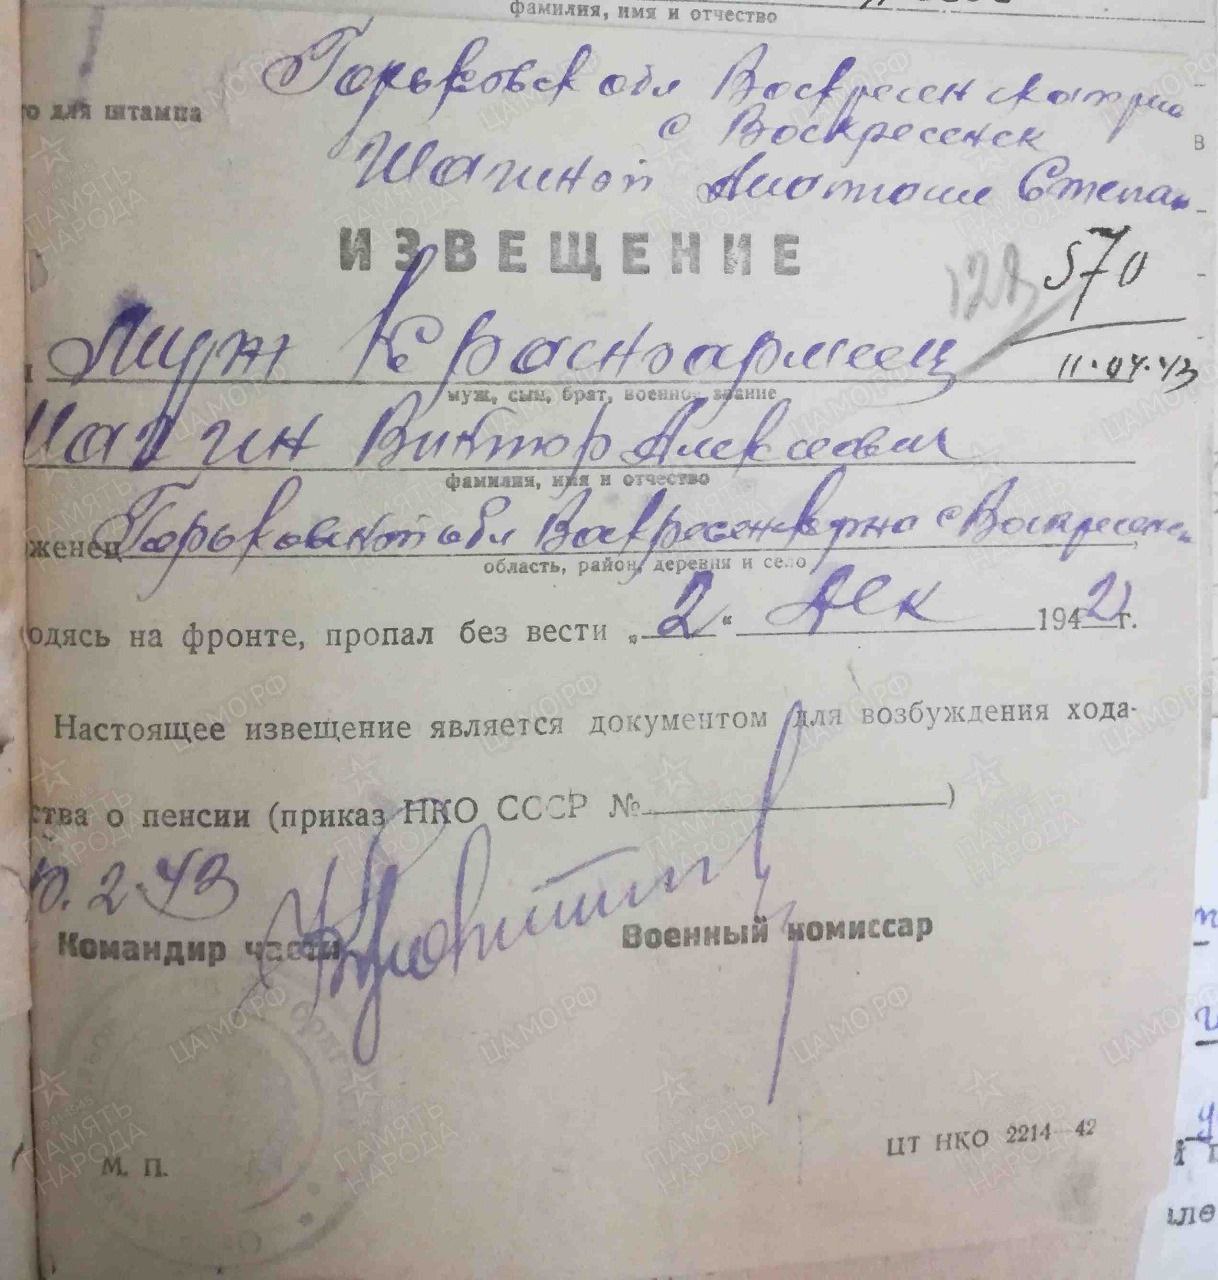 фамилия, имя и отчество
Горьковск обл Воскресенск
с Воскресенск
о для штампа
Шагиной Степан
ИЗВЕЩЕНИЕ
128 570
11.04.43
Муж Красноармеец
муж, сын, брат, военное звание
Шагин Виктор Алексеевич
фамилия, имя и отчество
женец Горьковской обл Воскресенск рна с Воскресенск
область, район, деревня и село
одясь на фронте, пропал без вести „2“ дек 1942 г.
Настоящее извещение является документом для возбуждения хода-
ства о пенсии (приказ НКО СССР № )
10.2.43
Командир части Военный комиссар
М. П.
ЦТ НКО 2214—42
ПАМЯТЬ НАРОДА
ЦАМО.РФ